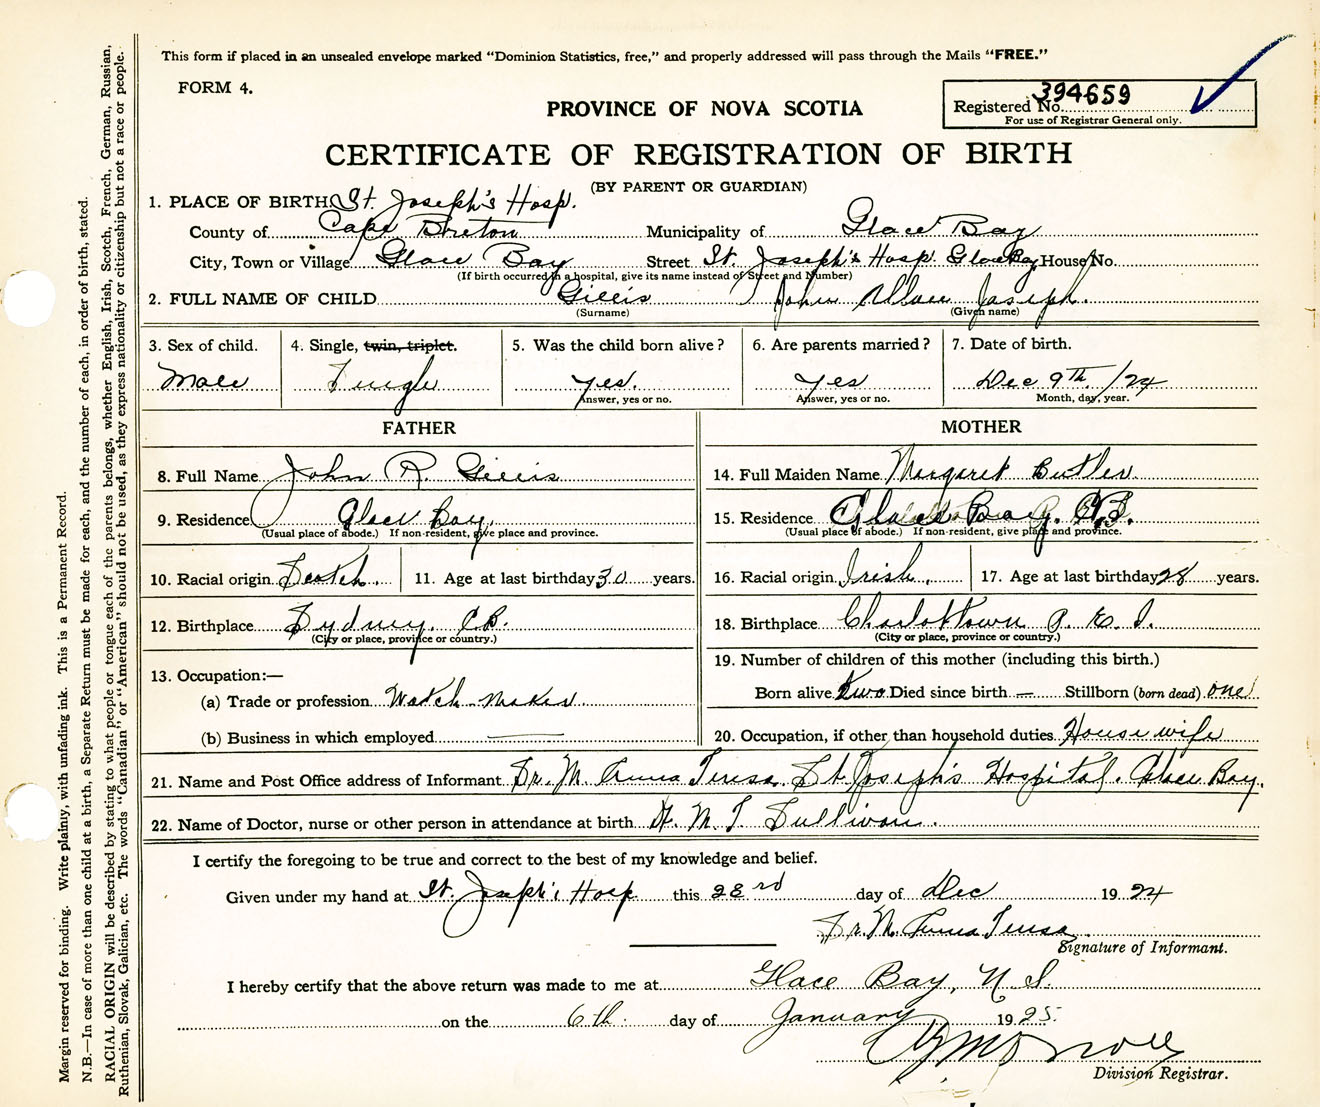 This form if placed in an unsealed envelope marked "Dominion Statistics, free," and properly addressed will pass through the Mails "FREE."
FORM 4.
Registered No. 394659
For use of Registrar General only.
PROVINCE OF NOVA SCOTIA
CERTIFICATE OF REGISTRATION OF BIRTH
(BY PARENT OR GUARDIAN)
1. PLACE OF BIRTH St. Joseph's Hosp.
County of Cape Breton Municipality of Glace Bay
City, Town or Village Glace Bay Street St. Joseph's Hosp. Glace Bay House No.
(If birth occurred in a hospital, give its name instead of Street and Number)
2. FULL NAME OF CHILD Gillis John Joseph.
(Surname) (Given name)
3. Sex of child. 4. Single, twin, triplet. 5. Was the child born alive? 6. Are parents married? 7. Date of birth.
Male Single yes. yes Dec 9th /24
Answer, yes or no. Answer, yes or no. Month, day, year.
FATHER MOTHER
8. Full Name John R. Gillis 14. Full Maiden Name Margaret Butler
9. Residence Glace Bay. 15. Residence Glace Bay. C.B.
(Usual place of abode.) If non-resident, give place and province. (Usual place of abode.) If non-resident, give place and province.
10. Racial origin Scotch. 11. Age at last birthday 30 years. 16. Racial origin Irish. 17. Age at last birthday 28 years.
12. Birthplace Sydney. C.B. 18. Birthplace Charlottown P. E. I.
(City or place, province or country.) (City or place, province or country.)
13. Occupation:— 19. Number of children of this mother (including this birth.)
(a) Trade or profession Watch-Maker Born alive Two Died since birth — Stillborn (born dead) one
(b) Business in which employed — 20. Occupation, if other than household duties Housewife
21. Name and Post Office address of Informant Sr. M. Anna Teresa St. Joseph's Hospital, Glace Bay.
22. Name of Doctor, nurse or other person in attendance at birth M. T. Sullivan.
I certify the foregoing to be true and correct to the best of my knowledge and belief.
Given under my hand at St. Joseph's Hosp this 23rd day of Dec 1924
Sr. M. Anna Teresa
Signature of Informant.
I hereby certify that the above return was made to me at Glace Bay, N.S.
on the 6th. day of January 1925.
Division Registrar.
Margin reserved for binding. Write plainly, with unfading ink. This is a Permanent Record.
N.B.—In case of more than one child at a birth, a Separate Return must be made for each, and the number of each, in order of birth, stated.
RACIAL ORIGIN will be described by stating to what people or tongue each of the parents belongs, whether English, Irish, Scotch, French, German, Russian,
Ruthenian, Slovak, Galician, etc. The words "Canadian" or "American" should not be used, as they express nationality or citizenship but not a race or people.